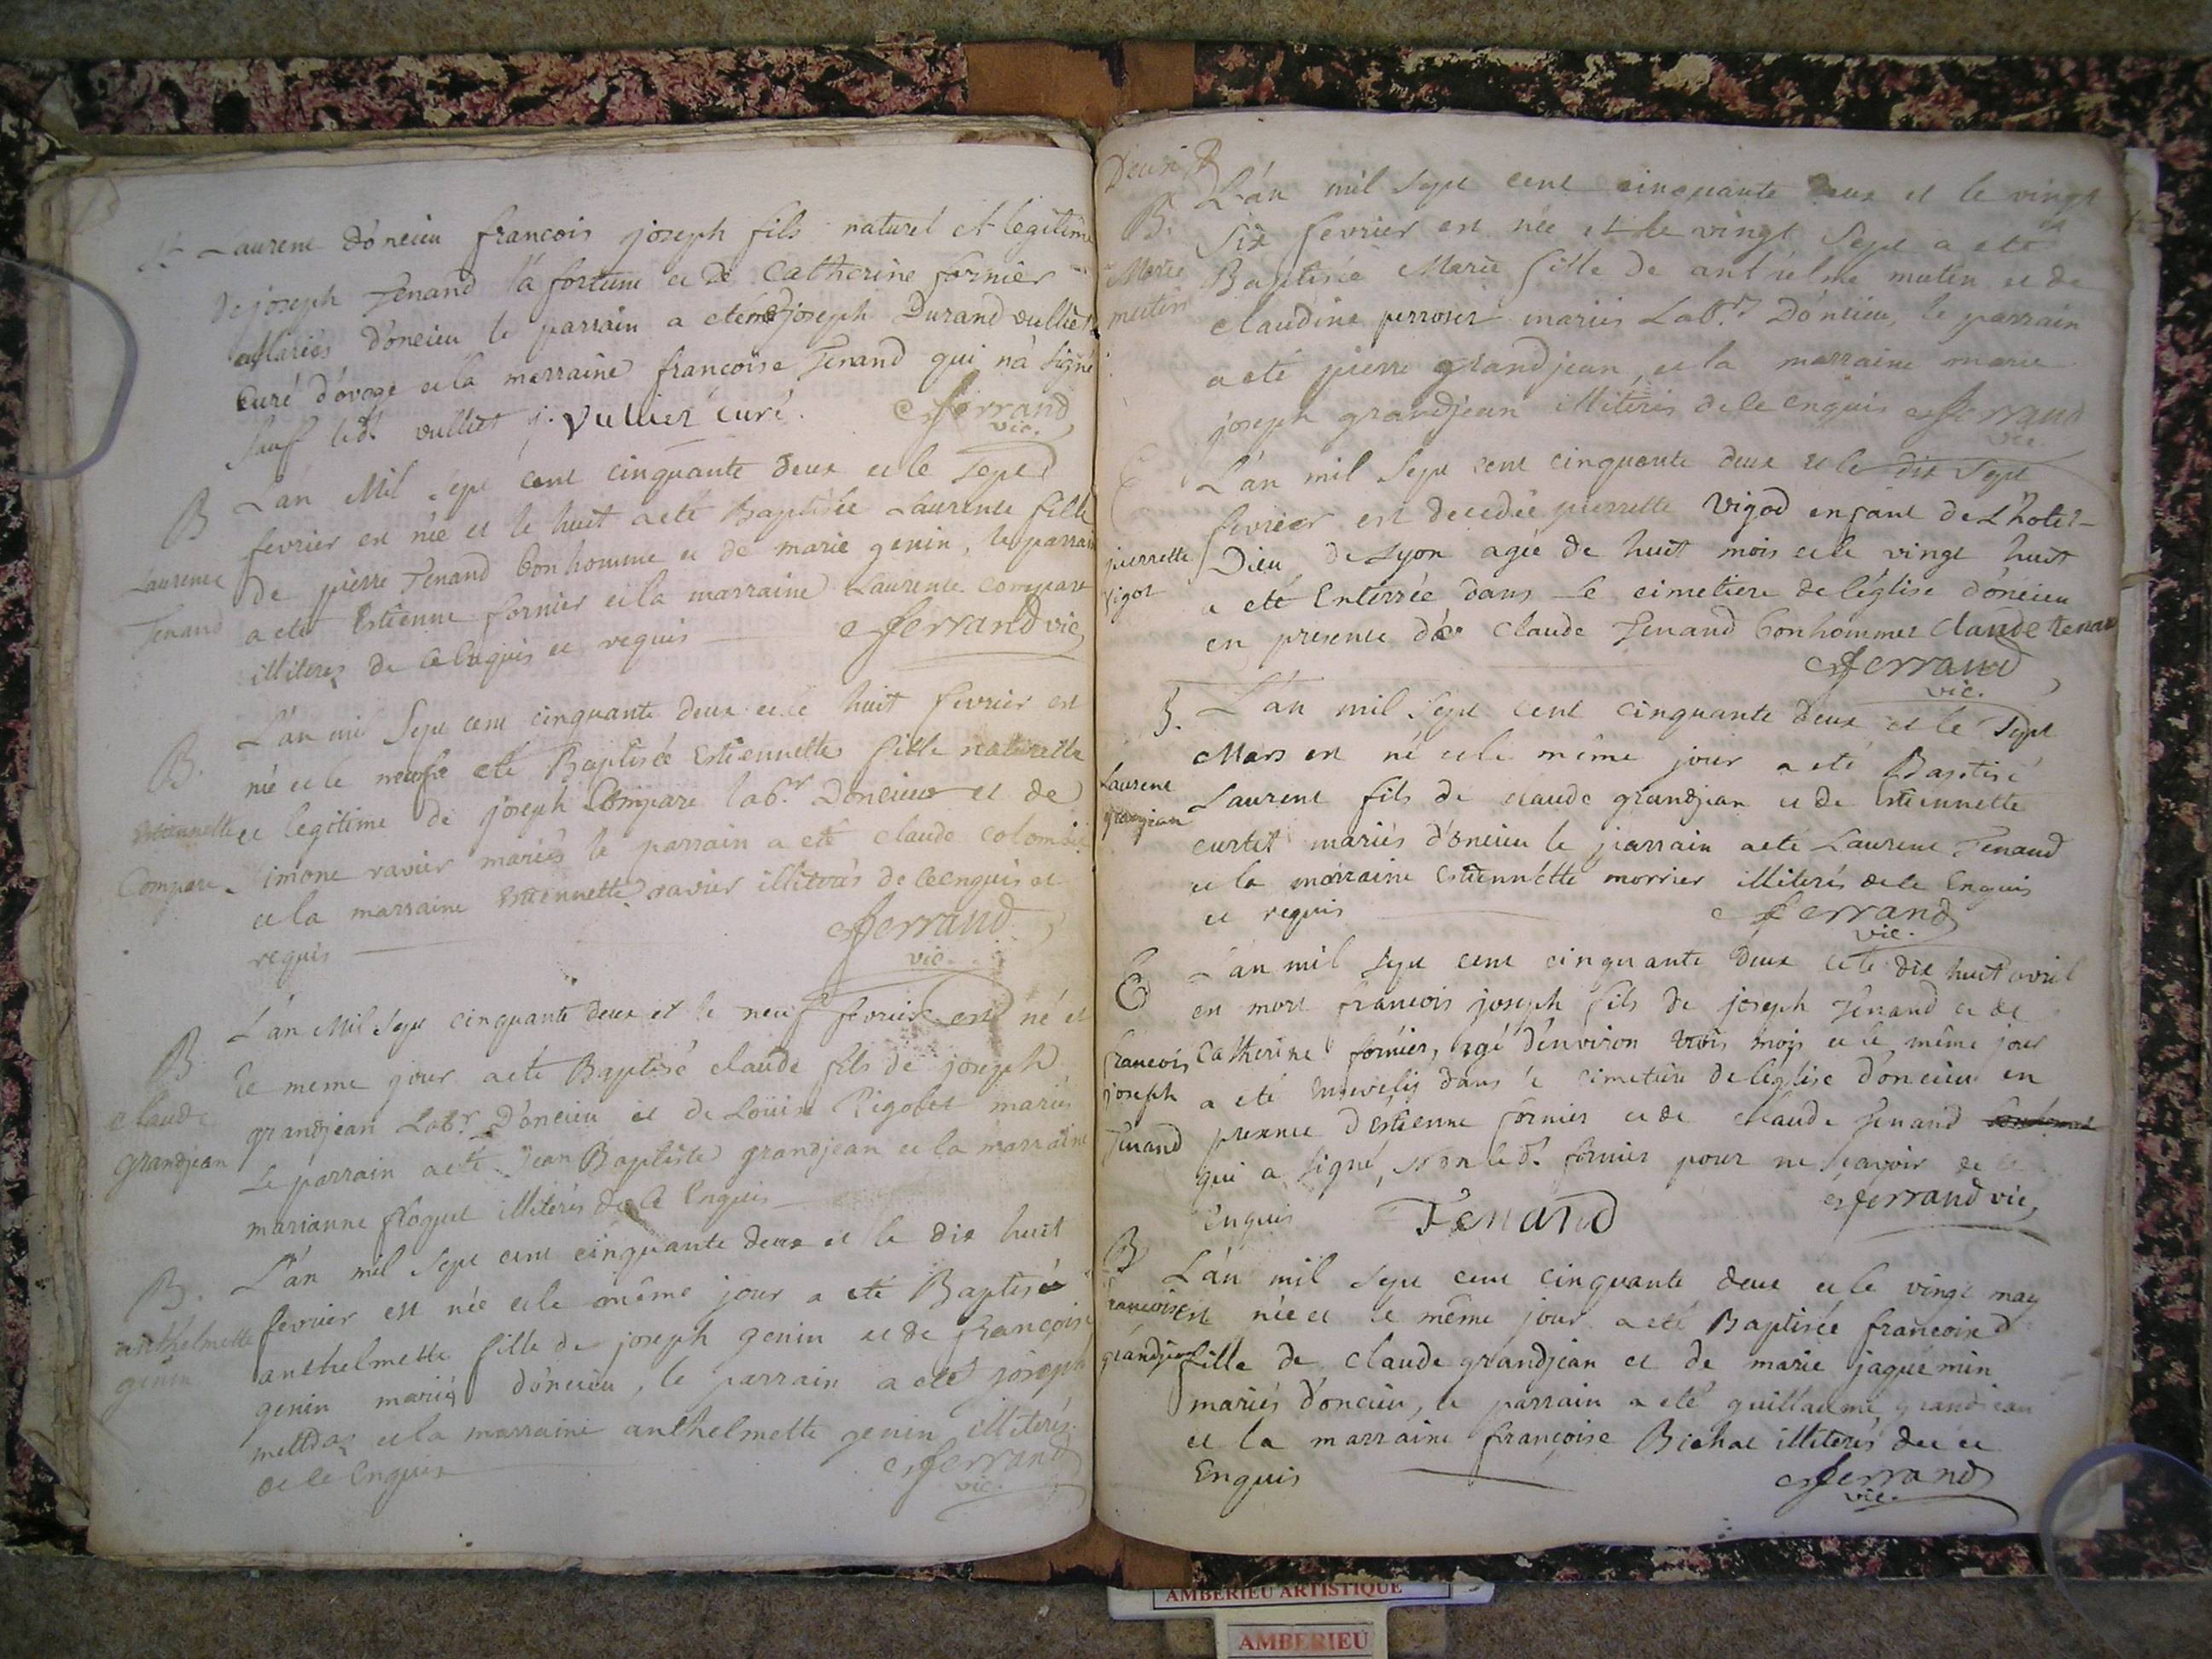 St Laurent d'oncieu francois joseph fils naturel et legitime
de joseph Tenand la fortune et de Catherine fornier
Mariés d'oncieu le parrain a eté me joseph Durand vulliet
Curé d'évoge et la marraine francoise Tenand qui n'a signé
Sauf led. vulliet j. Vulliet curé. Ferrand
vic.
B L'an Mil Sept cent cinquante deux et le sept
fevrier est née et le huit a eté Baptisée Laurence fille
Laurence de pierre Tenand bonhomme et de marie genin, le parrain
Tenand a eté Estienne fornier et la marraine Laurence compare
illiteres de ce enquis et requis Ferrand vic
B. L'an mil Sept cent cinquante deux et le huit fevrier est
née et le neuf a eté Baptisée Estiennette fille naturelle
Estiennette et legitime de joseph Compare labr. Doncieu et de
Compare Simone ravier mariés le parrain a eté claude colombe
et la marraine Estiennette ravier illiterés de ce enquis et
requis Ferrand
vic.
B L'an Mil Sept cinquante deux et le neuf fevrier est né et
le meme jour a eté Baptisé claude fils de joseph
Claude grandjean Labr. D'oncieu et de Louise Rigolet mariés
grandjean Le parrain a eté Jean Baptiste grandjean et la marraine
marianne floquet illiterés de ce Enquis
B. L'an mil Sept cent cinquante deux et le dix huit
fevrier est née et le même jour a eté Baptisée
anthelmette anthelmette fille de joseph genin et de françoise
genin genin mariés d'oncieu, le parrain a eté joseph
et la marraine anthelmette genin illiterés
de ce Enquis Ferrand
vic.
B. L'an mil Sept cent cinquante deux et le vingt
Six fevrier est née et le vingt Sept a eté
Marie Baptisée Marie fille de anthelme mutin et de
mutin claudine perroset mariés Labr. D'oncieu, le parrain
a eté pierre grandjean, et la marraine marie
joseph grandjean illiterés de ce enquis Ferrand
vic.
E L'an mil Sept cent cinquante deux et le dix Sept
fevrier est decedée pierrette Vigod enfant de L'hotel-
pierrette Dieu de Lyon agée de huit mois et le vingt huit
vigot a eté Enterrée dans le cimetiere de l'église d'oncieu
en presence de claude Tenand bonhomme Claude tenan
Ferrand
vic.
B. L'an mil Sept cent cinquante deux et le Sept
Mars est né et le même jour a eté Baptisé
Laurent Laurent fils de claude grandjean et de Estiennette
granjean curtet mariés d'oncieu le parrain a eté Laurent Tenand
et la marraine Estiennette morrier illiterés de ce Enquis
et requis Ferrand
vic.
E L'an mil Sept cent cinquante deux et le dix huit avril
est mort francois joseph fils de joseph Tenand et de
francois Catherine fornier, agé d'environ trois mois et le même jour
joseph a eté Ensevely dans le cimetiere de l'eglise d'oncieu en
Tenand presence d'Estienne fornier et de claude Tenand
qui a signé, non led. fornier pour ne sçavoir de ce
Enquis Tenand Ferrand vic
B L'an mil Sept cent cinquante deux et le vingt may
francoise est née et le même jour a eté Baptisée francoise
grandjean fille de claude grandjean et de marie jaquemin
mariés d'oncieu, le parrain a eté guillaume grandjean
et la marraine françoise Bichat illiterés de ce
Enquis Ferrand
vic.
AMBERIEU ARTISTIQUE
AMBERIEU